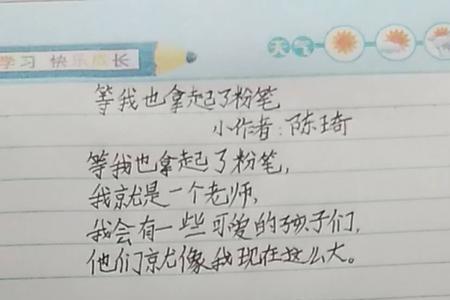 学习 快乐成长
天气
等我也拿起了粉笔
小作者:陈琦
等我也拿起了粉笔,
我就是一个老师,
我会有一些可爱的孩子们,
他们就像我现在这么大。